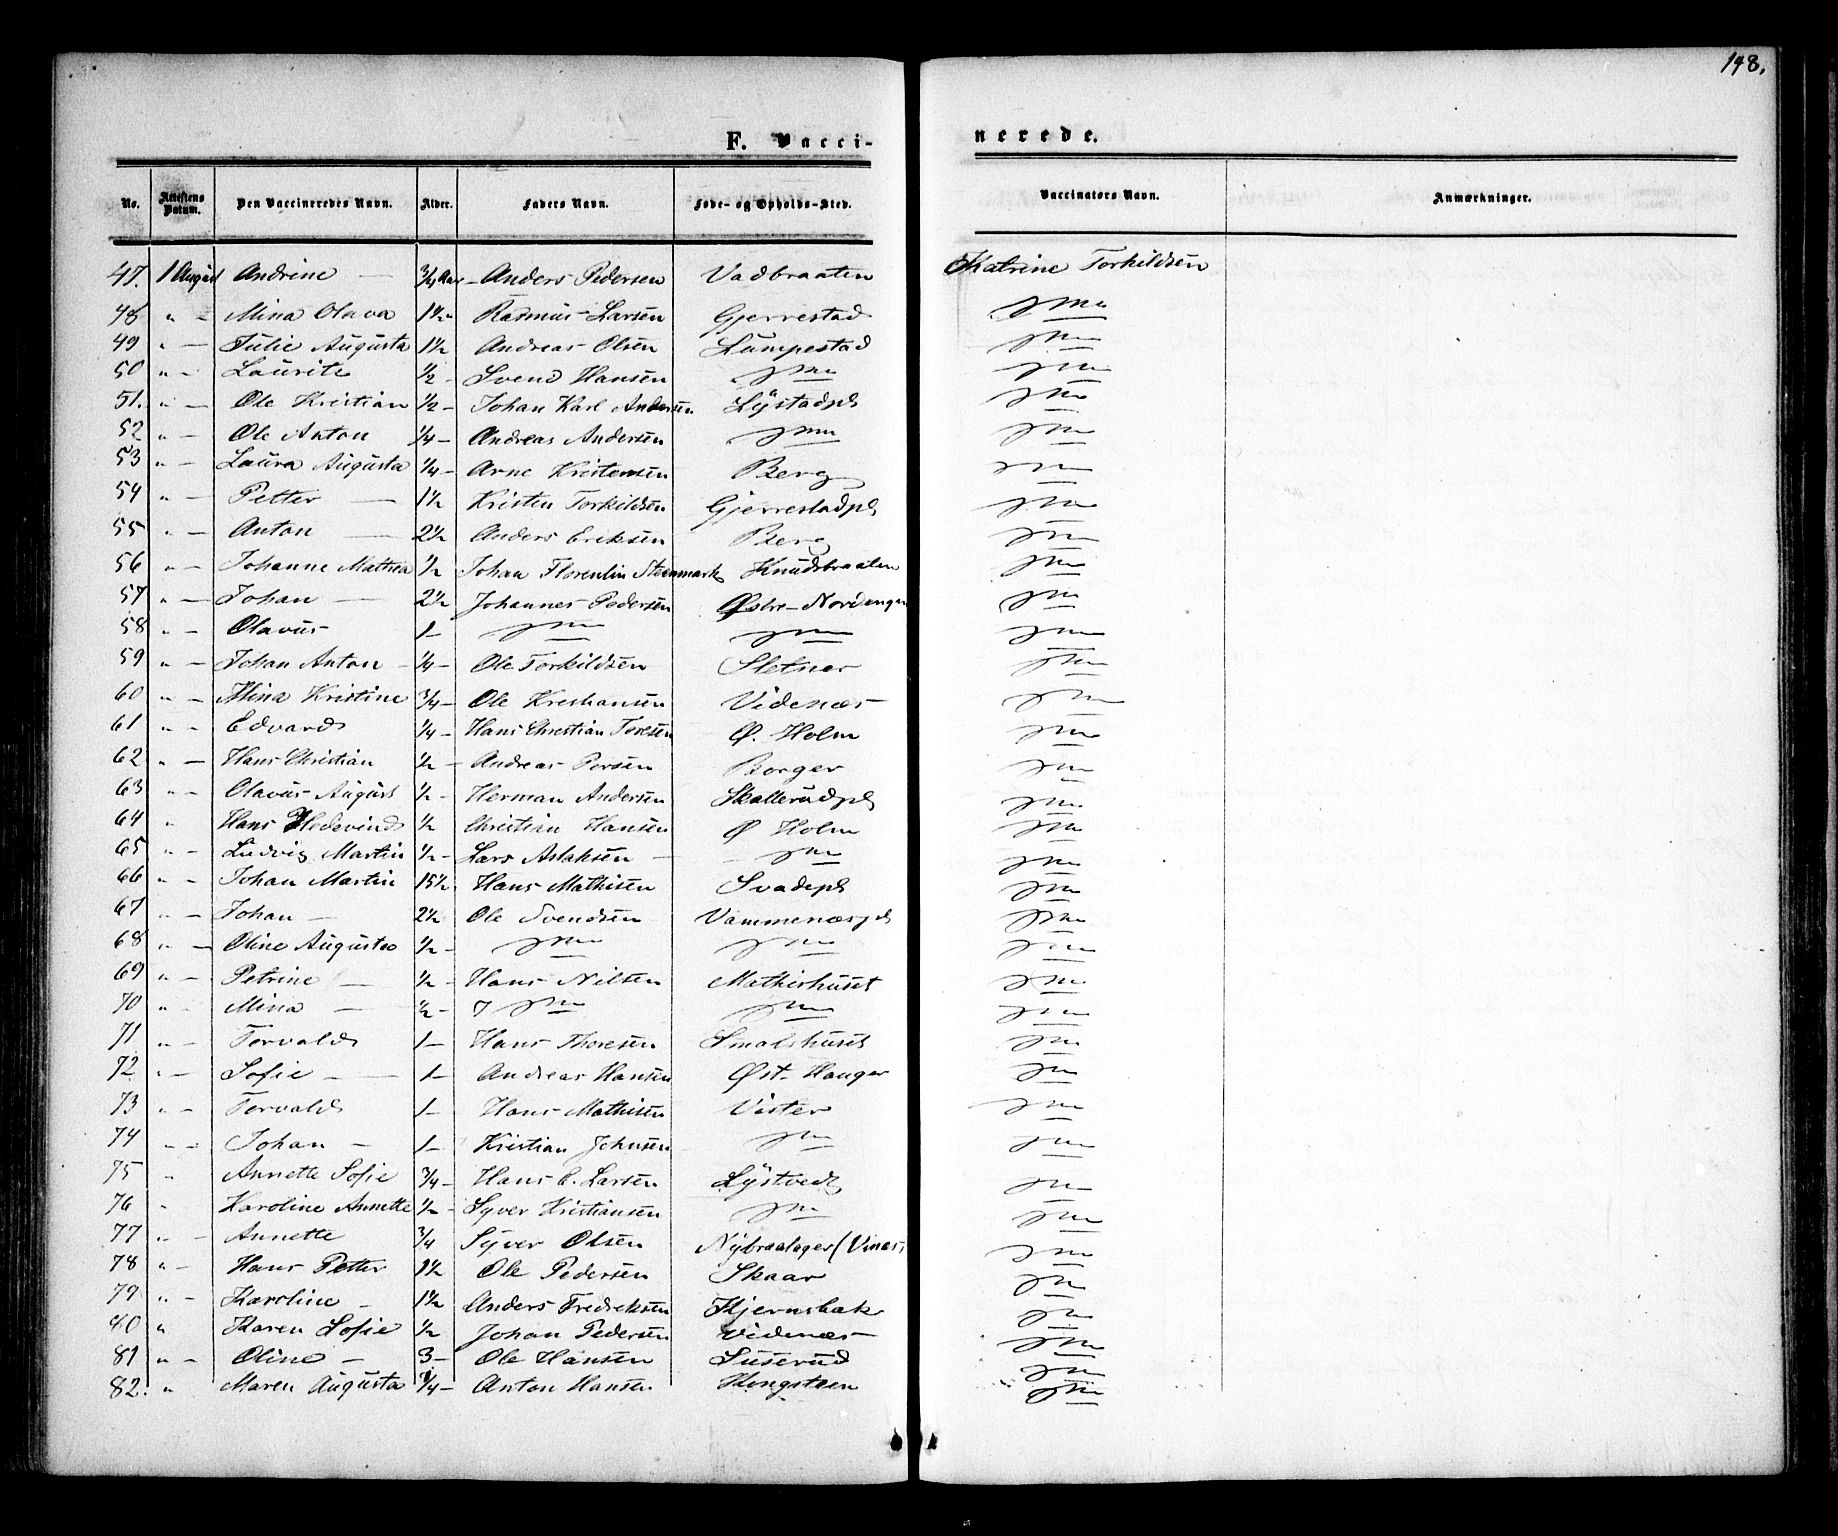 148.
F. Vacci-nerede.
No. Attestens Datum. Den Vaccineredes Navn. Alder. Faders Navn. Føde- og Opholds-Sted. Vaccinators Navn. Anmærkninger.
47. 1 August Andrine — 3/4 Aar – Anders Pedersen Vadbraaten Katrine Torkildsen
48 " – Mina Olava 1½ " Rasmus Larsen Gjerrestad
49 " – Julie Augusta 1½ Andreas Olsen Lumpestad
50 " – Laurits ½ – Svend Hansen
51. " – Ole Kristian ½ – Johan Karl Andersen Lystadpl
52 " – Ole Anton ¼ – Andreas Andersen
53 " – Laura Augusta ¼ – Arne Kristensen Berg
54 " – Petter — 1½ Kristen Torkildsen Gjerrestadpl
55 " – Anton — 2½ Anders Eriksen Berg
56 " – Johanne Mathea ½ Johan Florentin Steenmark Knudsbraaten
57 " – Johan — 2½ Johannes Pedersen Østre Nordengen
58 " – Olavus 1 –
59 " – Johan Anton – ¼ – Ole Torkildsen Sletner
60 " – Mina Kristine ¾ – Ole Kreshansen Videnæs
61 " – Edvard ¼ – Hans Christian Toresen Ø. Holm
62 " – Hans Christian ½ – Andreas Persen Borger
63 " – Olavus August ½ – Herman Andersen Skallerudpl
64 " Hans Hedevind ½ Christian Hansen Ø Holm
65 " – Ludvig Martin ½ – Lars Aslaksen –
66 " – Johan Martin 15½ Hans Mathisen Svadepl
67 " – Johan – 2½ Ole Svendsen Vammenæspl
68 " – Oline Augusta ½ –
69 " – Petrine – ½ – Hans Nilsen Mathishuset
70 " – Mina – ½ –
71 " – Torvald 1 – Hans Thoresen Smalshuset
72 " – Sofie — 1 – Andreas Hansen Øst. Hauger
73 " – Torvald 1 – Hans Mathisen Vister
74 " – Johan – 1 – Kristian Johnsen
75 " Annette Sofie ¾ – Hans E. Larsen Lystved
76 " Karoline Annette ½ – Syver Kristiansen
77 " – Annette ¾ Syver Olsen
78 " – Hans Petter 1½ Ole Pedersen Skaar
79 " – Karoline – 1½ Anders Fredriksen Kjernsbak
40 " Karen Sofie ½ Johan Pedersen Videnæs
81 " – Oline – 3 – Ole Hansen Suserud
82. " Maren Augusta ¾ – Anton Hansen Kongsteen